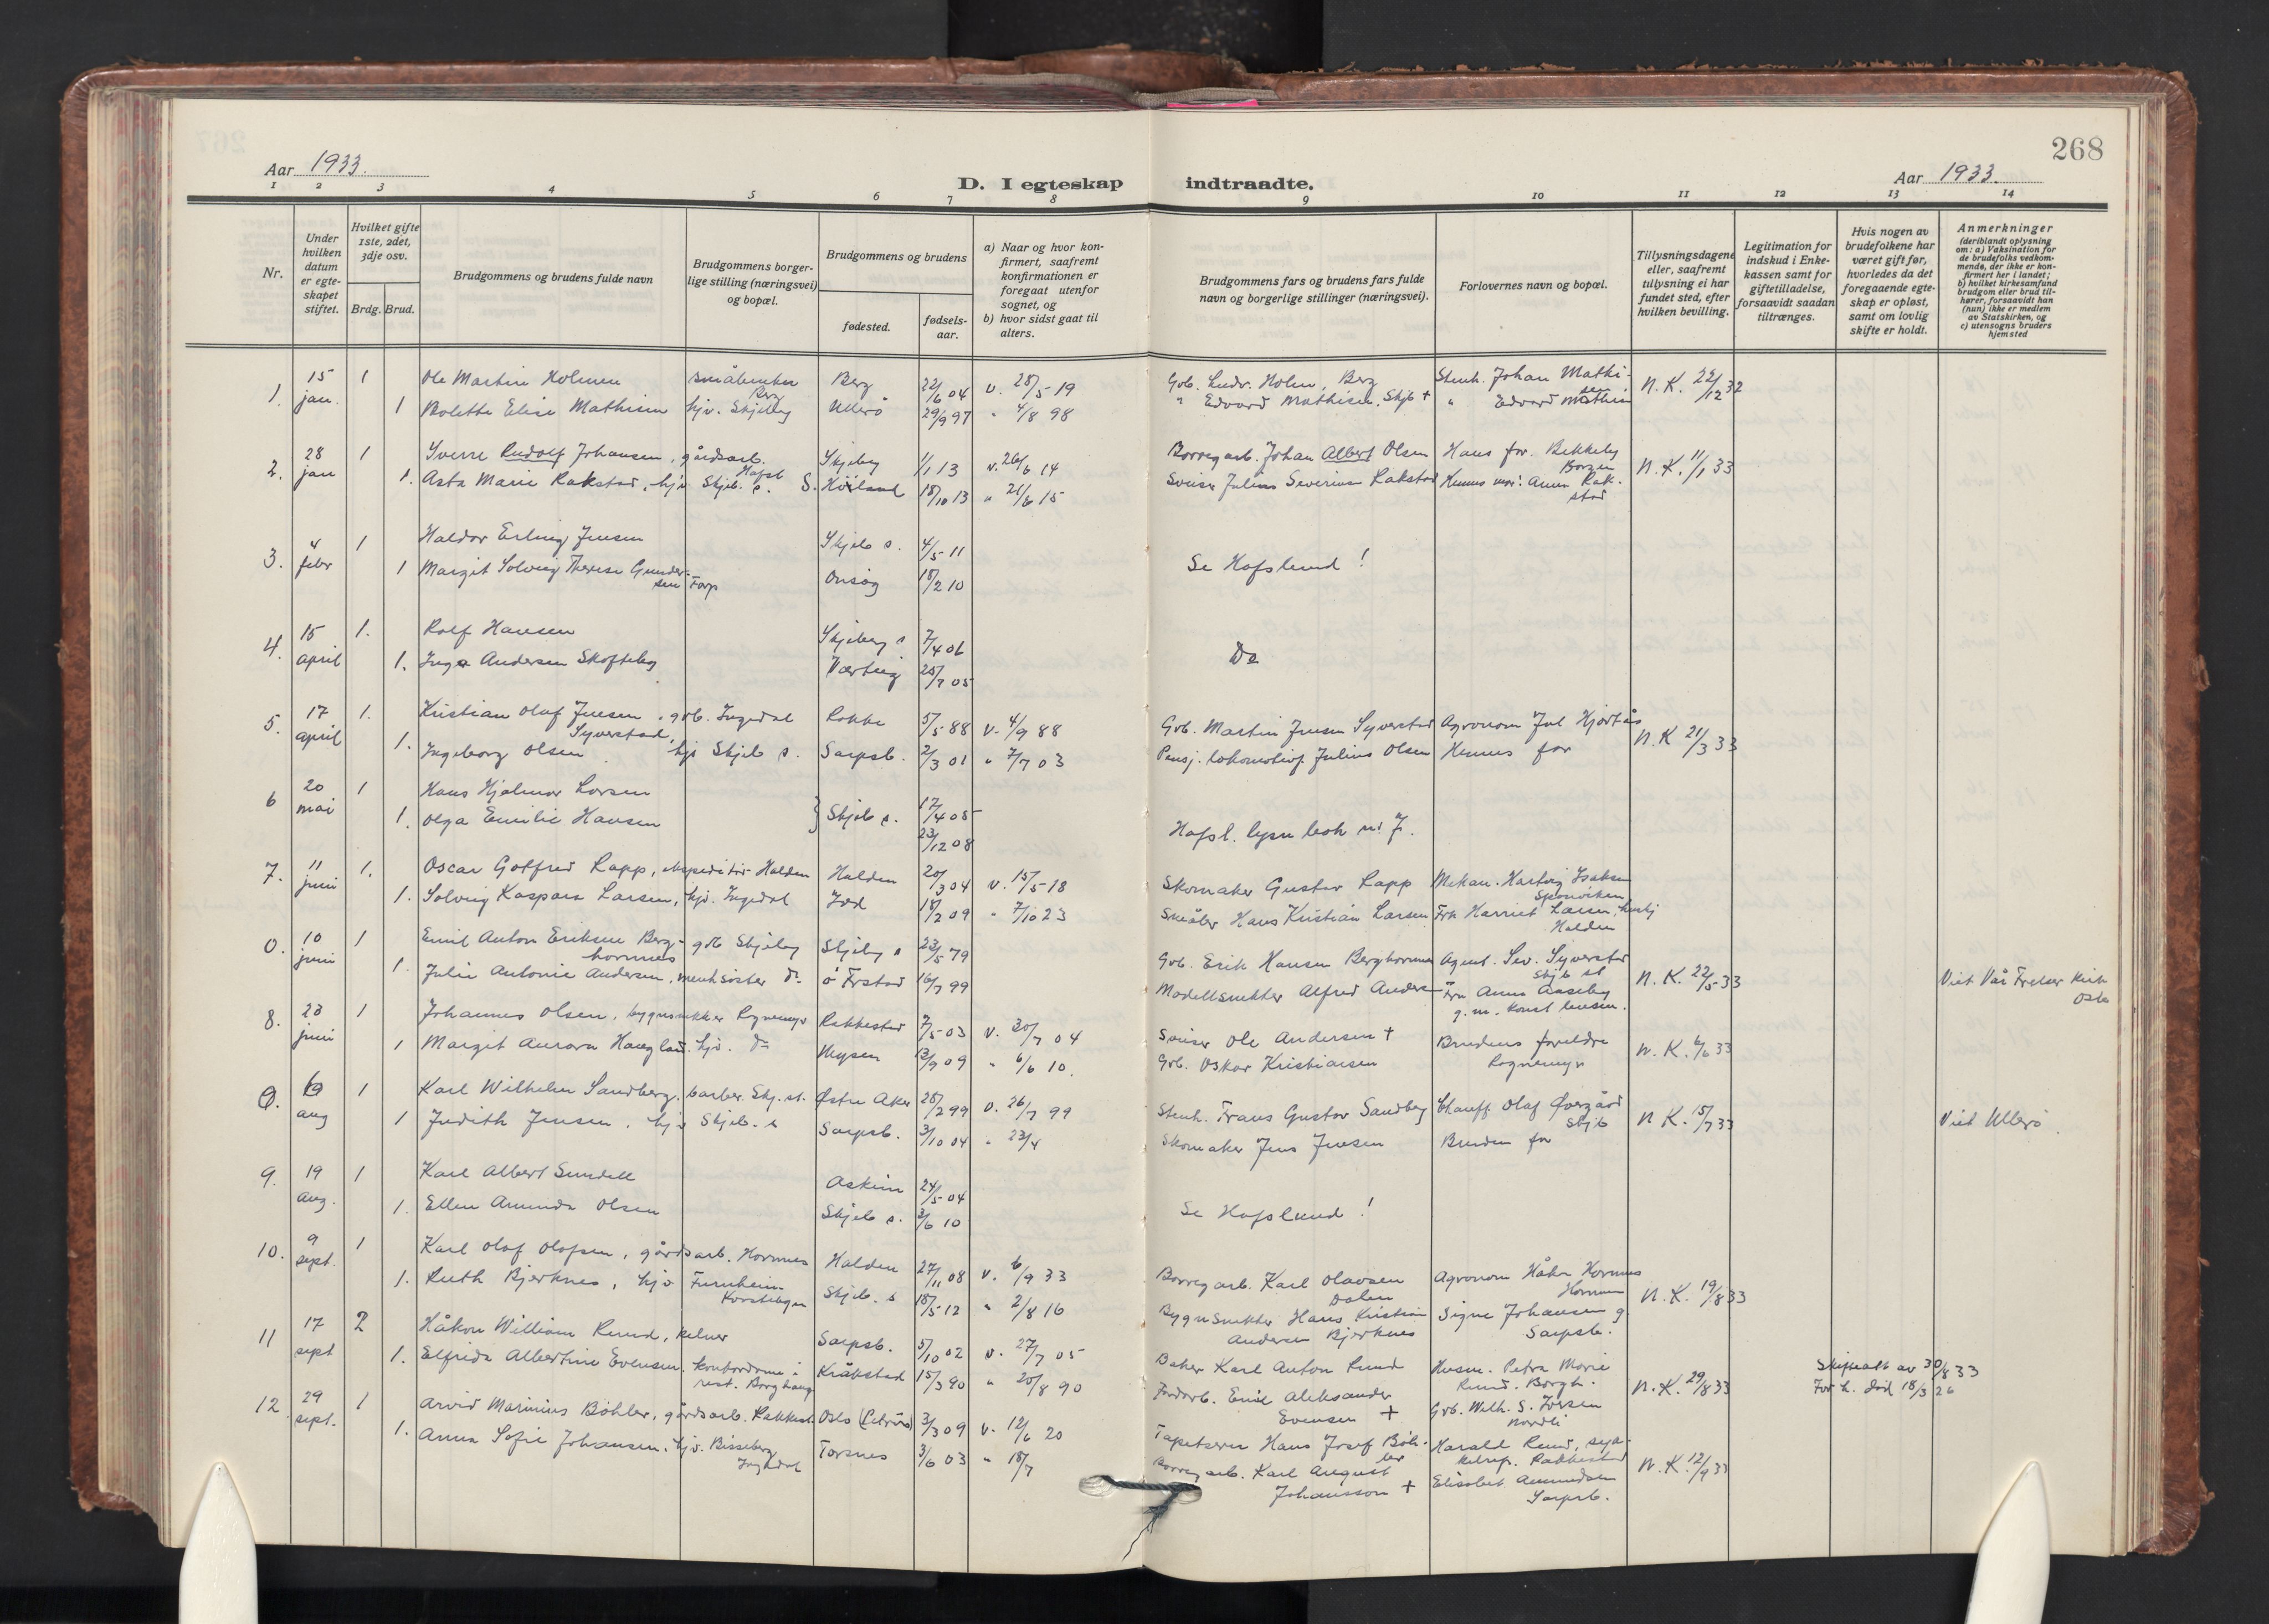 268
Aar 1933.
D. I egteskap indtraadte.
Aar 1933.
1 2 3 4 5 6 7 8 9 10 11 12 13 14
Nr.
Under hvilken datum er egteskapet stiftet.
Hvilket gifte 1ste, 2det, 3dje osv.
Brdg. Brud.
Brudgommens og brudens fulde navn
Brudgommens borgerlige stilling (næringsvei) og bopæl.
Brudgommens og brudens
fødested.
fødselsaar.
a) Naar og hvor konfirmert, saafremt konfirmationen er foregaat utenfor sognet, og
b) hvor sidst gaat til alters.
Brudgommens fars og brudens fars fulde navn og borgerlige stillinger (næringsvei).
Forlovernes navn og bopæl.
Tillysningsdagene eller, saafremt tillysning ei har fundet sted, efter hvilken bevilling.
Legitimation for indskud i Enkekassen samt for giftetilladelse, forsaavidt saadan tiltrænges.
Hvis nogen av brudefolkene har været gift før, hvorledes da det foregaaende egteskap er opløst, samt om lovlig skifte er holdt.
Anmerkninger (deriblandt oplysning om: a) Vaksination for de brudefolks vedkommende, der ikke er konfirmert her i landet; b) hvilket kirkesamfund brudgom eller brud tilhører, forsaavidt han (hun) ikke er medlem av Statskirken, og c) utensogns bruders hjemsted
1. 15 jan. 1 Ole Martin Holmen småbruker Berg Berg 22/6 04 v. 28/5 19 Gvb. Ludv. Holm, Berg Stenh. Johan Mathisen N. K. 22/12 32
1 Bolette Elise Mathisen hjv. Skjeberg Ullerø 29/9 97 " 4/8 98 " Edvard Mathisen, Skjb + " Edvard Mathisen
2. 28 jan 1 Sverre Rudolf Johansen, gårdsarb. Hafsl Skjeberg 1/1 13 v. 26/6 14 Borregarb. Johan Albert Olsen Hans far. Bekkeby Borgen N. K. 11/1 33
1. Asta Marie Rakstad, hjv Skjeb. s. S. Høiland 18/10 13 " 21/6 15 Sveiser Julius Severinsen Rakstad Hennes mor: Anna Rakstad
3. 4 febr 1 Haldor Erling Jensen Skjeb s. 4/5 11
1 Margit Solveig Therese Gundersen Torp Onsøy 18/2 10 Se Hafslund!
4. 15 april 1. Rolf Hansen Skjeberg s 7/4 06
1. Inga Andersen Skofteby Varteig 25/7 05 Do
5. 17 april 1. Kristian Olaf Jensen Syverstad, gvb. Ingedal Rokke 5/5 88 v. 4/9 88 Gvb. Martin Jensen Syverstad Agronom Jul Hjortås N. K 21/3 33
1. Ingeborg Olsen hjv Skjeb s. Sarpsb. 2/3 01 " 7/7 03 Pensj. lokomotivf. Julius Olsen Hennes far
6 20 mai 1 Hans Hjalmar Larsen Skjeb s. 17/4 05
1. Olga Emilie Hansen 23/12 08 Hafsl. lysn bok nr. 7.
7. 11 juni 1. Oscar Gotfred Lapp, ekspeditør Halden Halden 20/3 04 v. 15/5 18 Skomaker Gustav Lapp Mekan. Hartvig Isaksen Sponviken
1. Solveig Kaspara Larsen, hjv. Ingedal Idd 18/2 09 " 7/10 23 Småbr Hans Kristian Larsen Frk Harriet Larsen, hushj Halden
0. 10 juni 1 Emil Anton Eriksen Berghornnes gvb Skjeberg Skjeberg s 23/5 79 Gvb. Erik Hansen Berghornnes Agent. Sev. Syverstad Skjb st N. K. 22/5 33 Viet Vår Frelser kirk Oslo
1. Julie Antonie Andersen, menhsøster do Ø Frstad 16/7 99 Modellsnekker Alfred Andersen Fru Anna Aaseby g. m.
8. 23 juni 1 Johannes Olsen, bygnsnekker Rognemyr Rakkestad 7/5 03 v. 30/7 04 Sveiser Ole Andersen + Brudens foreldre Rognemyr N. K. 6/6 33
1 Margit Aurora Haugland. hjv. do Mysen 13/9 09 " 6/6 10. Gvb. Oskar Kristiansen
0. 6 aug 1 Karl Wilhelm Sandberg. barber. Skj. st. Østre Aker 28/2 99 v. 26/7 99 Stenh. Frans Gustav Sandberg Chauff Olaf Øvergård Skjb N K. 15/7 33 Viet Ullerø.
1 Judith Jensen. hjv Skjeb. s Sarpsb. 3/10 04 " 23/4 Skomaker Jens Jensen Bruden far
9. 19 aug. 1 Karl Albert Sundell Askim 24/5 04
1. Ellen Amunda Olsen Skjeb s. 3/6 10 Se Hafslund!
10. 9 sept. 1 Karl Olaf Olafsen, gårdsarb. Hornnes Halden 27/11 08 v. 6/9 33 Borregarb. Karl Olavsen Dalen Agronom Håkon Hornnes Hornnes N. K. 19/8 33
1. Ruth Bjerknes, hjv Furuheim Skjeb. s 18/5 12 " 2/8 16 Bygnsnekker Hans Kristian Andersen Bjerknes Signe Johansen g. Sarpsb.
11 17 sept 2 Håkon William Ruud, kelner Sarpsb. 5/10 02 v. 27/7 05 Baker Karl Anton Ruud Husm. Petra Marie Ruud. Borgh. N. K. 29/8 33 Skifteatt av 30/8 33
1. Elfrida Albertine Evensen. kontordame i rest. Borghaug Kråkstad 15/3 90 " 20/8 90 Jordarb. Emil Aleksander Evensen + Gvb. Wilh. S. Iversen Nordli For h. død 18/3 26
12 29 sept. 1 Arvid Marinius Böhler, gårdsarb. Rakkest. Oslo 3/3 09 v. 12/6 20 Tapetserer Hans Josef Böhler Harald Ruud, Rakkestad N. K. 12/9 33
1. Anna Sofie Johansen. hjv. Bisseberg Ingedal Torsnes 3/6 03 " 18/7 Borregarb. Karl August Johansson + Elisabet Amundsen Sarpsb.